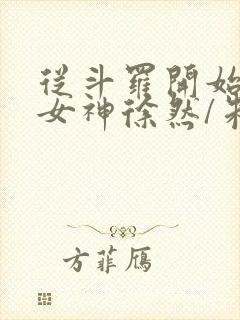 從斗羅開始
女神徐然/朱
方菲雁